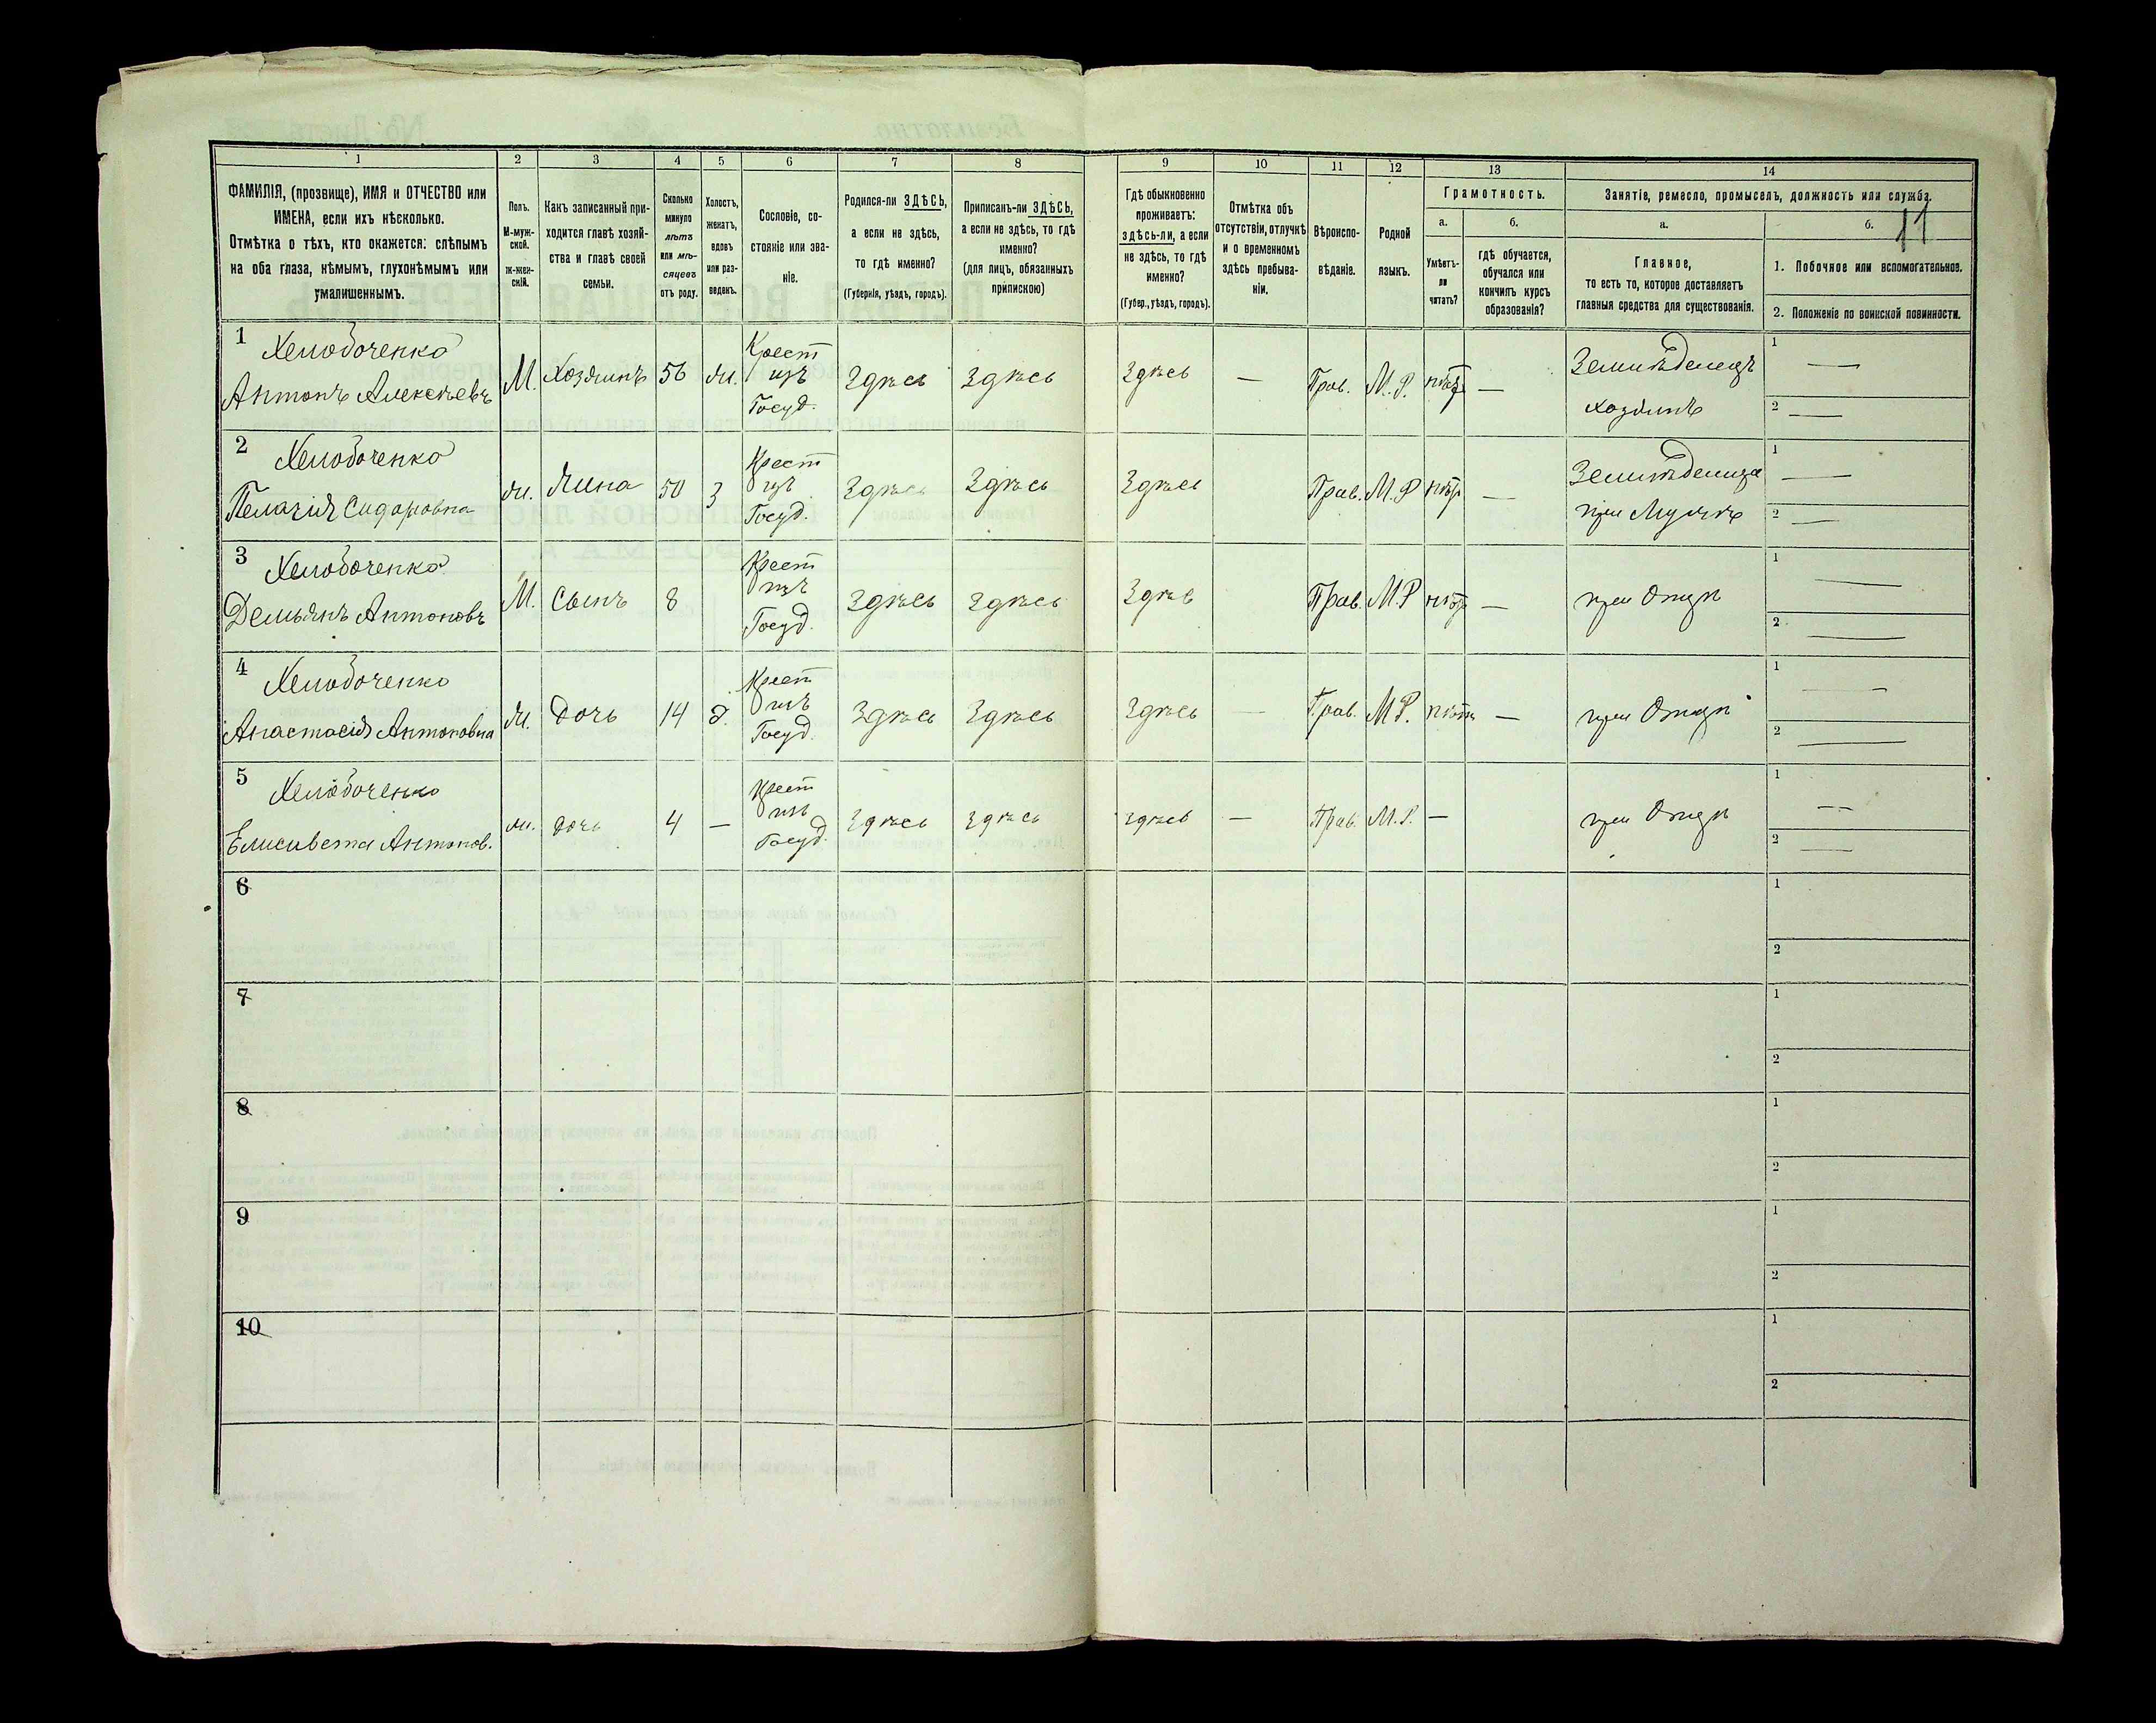 11
1 2 3 4 5 6 7 8 9 10 11 12 13 14
ФАМИЛІЯ, (прозвище), ИМЯ и ОТЧЕСТВО или
ИМЕНА, если ихъ нѣсколько.
Отмѣтка о тѣхъ, кто окажется: слѣпымъ
на оба глаза, нѣмымъ, глухонѣмымъ или
умалишеннымъ.
Полъ.
М-муж-
ской.
ж-жен-
скій.
Какъ записанный при-
ходится главѣ хозяй-
ства и главѣ своей
семьи.
Сколько
минуло
лѣтъ
или мѣ-
сяцевъ
отъ роду.
Холостъ,
женатъ,
вдовъ
или раз-
веденъ.
Сословіе, со-
стояніе или зва-
ніе.
Родился-ли ЗДѢСЬ,
а если не здѣсь,
то гдѣ именно?
(Губернія, уѣздъ, городъ).
Приписанъ-ли ЗДѢСЬ,
а если не здѣсь, то гдѣ
именно?
(для лицъ, обязанныхъ
припискою)
Гдѣ обыкновенно
проживаетъ:
здѣсь-ли, а если
не здѣсь, то гдѣ
именно?
(Губер., уѣздъ, городъ).
Отмѣтка объ
отсутствіи, отлучкѣ
и о временномъ
здѣсь пребыва-
ніи.
Вѣроиспо-
вѣданіе.
Родной
языкъ.
Грамотность.
а.
Умѣетъ-
ли
читать?
б.
гдѣ обучается,
обучался или
кончилъ курсъ
образованія?
Занятіе, ремесло, промыселъ, должность или служба.
а.
Главное,
то есть то, которое доставляетъ
главныя средства для существованія.
б.
1. Побочное или вспомогательное.
2. Положеніе по воинской повинности.
1 Хемобоченко
Антонъ Алексѣевъ М. Хозяинъ 56 ж. Крест изъ Госуд. Здѣсь Здѣсь Здѣсь — Прав. М.Р. нѣтъ — Земледѣлецъ хозяинъ 1 — 2 —
2 Хемобоченко
Пелагія Сидоровна ж. Жена 50 З Крест изъ Госуд. Здѣсь Здѣсь Здѣсь Прав. М.Р нѣтъ — при Мужѣ 1 — 2 —
3 Хемобоченко
Демьянъ Антоновъ М. Сынъ 8 Крест изъ Госуд. Здѣсь Здѣсь Здѣсь Прав. М.Р нѣтъ — при Отцѣ 1 — 2 —
4 Хемобоченко
Анастасія Антоновна ж. Дочь 14 д. Крест изъ Госуд. Здѣсь Здѣсь Здѣсь — Прав. М Р. нѣтъ — при Отцѣ 1 — 2 —
5 Хемобоченко
Елисивета Антонов. ж. дочь 4 — Крест изъ Госуд. Здѣсь Здѣсь здѣсь — Прав. М.Р. — при Отцѣ 1 — 2 —
6 1 2
7 1 2
8 1 2
9 1 2
10 1 2